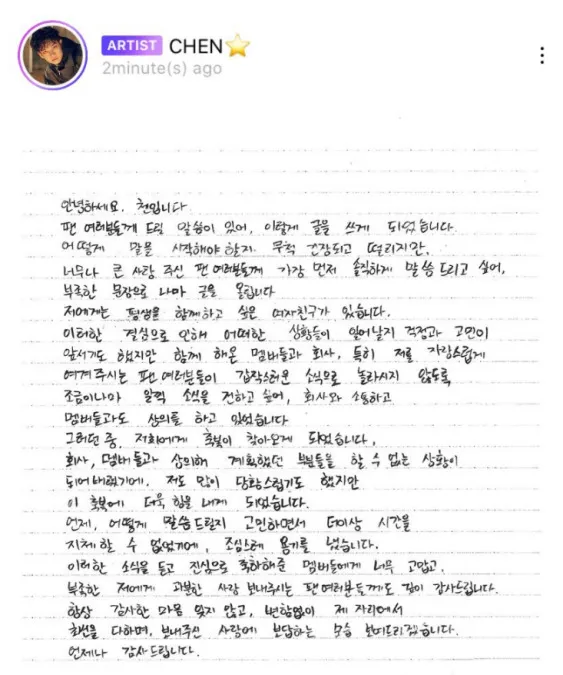 ARTIST CHEN⭐
2minute(s) ago
안녕하세요. 첸입니다
팬 여러분들께 드릴 말씀이 있어, 이렇게 글을 쓰게 되었습니다.
어떻게 말을 시작해야 할지 무척 긴장되고 떨리지만,
너무나 큰 사랑 주신 팬 여러분들께 가장 먼저 솔직하게 말씀 드리고 싶어,
부족한 문장으로 나마 글을 올립니다
저에게는 평생을 함께하고 싶은 여자친구가 있습니다.
이러한 결심으로 인해 어떠한 상황들이 일어날지 걱정과 고민이
앞서기도 했지만 함께 해온 멤버들과 회사, 특히 저를 자랑스럽게
여겨주시는 팬 여러분들이 갑작스러운 소식으로 놀라시지 않도록
조금이나마 일찍 소식을 전하고 싶어, 회사와 소통하고
멤버들과도 상의를 하고 있었습니다
그러던 중, 저희에게 축복이 찾아오게 되었습니다.
회사, 멤버들과 상의해 계획했던 부분들을 할 수 없는 상황이
되어버렸기에, 저도 많이 당황스럽기도 했지만
이 축복에 더욱 힘을 내게 되었습니다.
언제, 어떻게 말씀드릴지 고민하면서 더이상 시간을
지체할 수 없었기에, 조심스레 용기를 냈습니다.
이러한 소식을 듣고 진심으로 축하해준 멤버들에게 너무 고맙고,
부족한 저에게 과분한 사랑 보내주시는 팬 여러분들께도 깊이 감사드립니다.
항상 감사한 마음 잊지 않고, 변함없이 제 자리에서
최선을 다하며, 보내주신 사랑에 보답하는 모습 보여드리겠습니다.
언제나 감사드립니다.